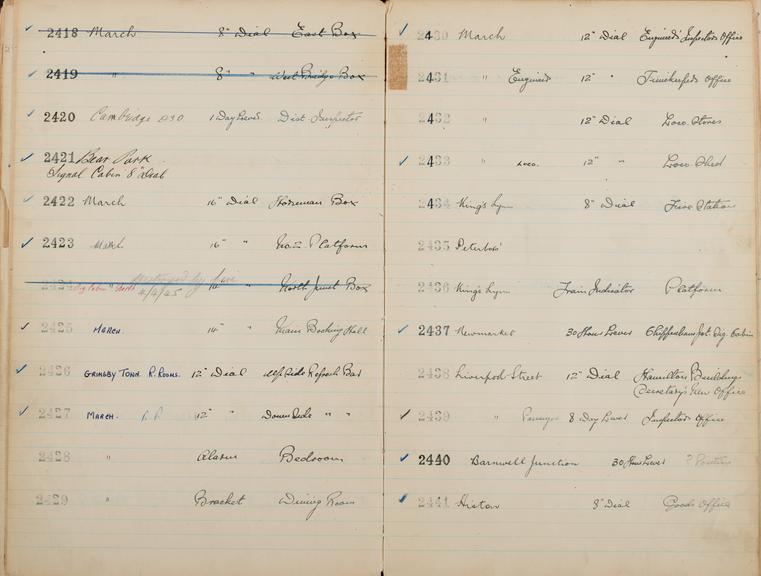 2418 March 8" Dial East Box
2419 " 8" " West Bridge Box
2420 Cambridge 1 Day Lever Dist Inspector
2421 Bear Park
Signal Cabin 8" Dial
2422 March 16" Dial Horseman Box
2423 March 16" " Main Platform
Destroyed by fire
2424 " 14" " North Junct Box
4/4/45
2425 MARCH. 14" " Main Booking Hall
2426 GRIMSBY TOWN R. ROOMS. 12" Dial Up Side Refresh Bar
2427 MARCH. R.R 12" " Down Side " "
2428 " Alarm Bedroom
2429 " Bracket Dining Room
2430 March 12" Dial Engineer's Inspectors Office
2431 " Engineers 12" " Timekeepers Office
2432 " 12" Dial Loco. Stores
2433 " Loco. 12" " Loco Shed
2434 King's Lynn 8" Dial Fire Station
2435 Peterboro'
2436 King's Lynn Train Indicator Platform
2437 Newmarket 30 Hour Lever Chippenham Jct. Sig. Cabin
2438 Liverpool Street 12" Dial Hamilton Buildings
Secretary's Office
2439 " Passenger 8 Day Lever Inspectors Office
2440 Barnwell Junction 30 Hour Lever
2441 Histon 8" Dial Goods Office